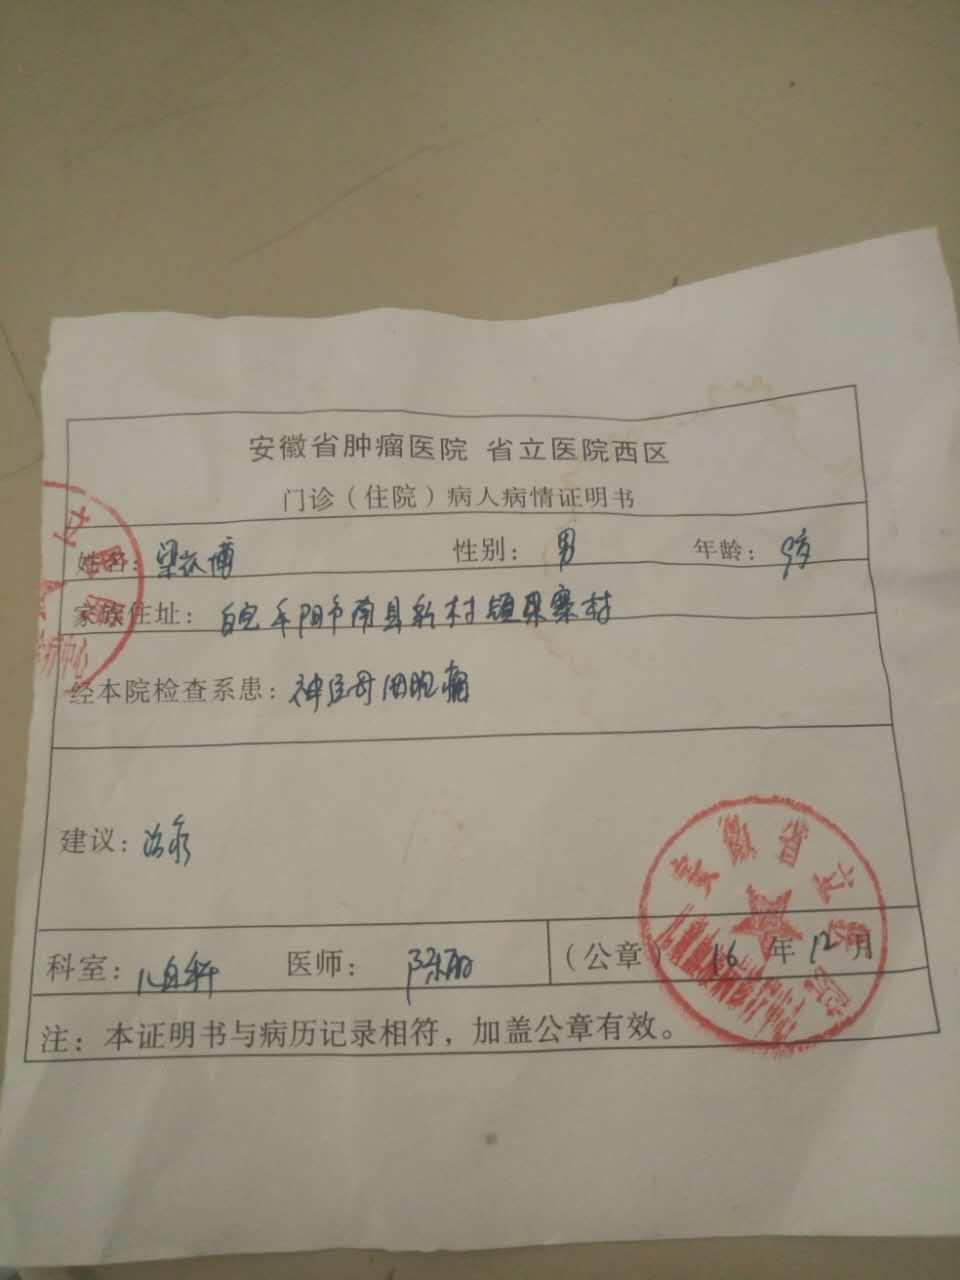 安徽省肿瘤医院 省立医院西区
门诊（住院）病人病情证明书
姓名：梁 博 性别：男 年龄：9岁
家族住址： 阜阳市 南县新村镇 寨村
经本院检查系患：神经母细胞瘤
建议：治疗
科室：儿科 医师：陈 （公章） 16年12月
注：本证明书与病历记录相符，加盖公章有效。
安徽省立医院